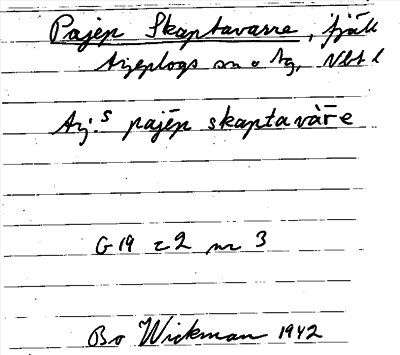 Pajēp Skaptavarre, fjäll
Arjeplogs sn o tg, Vbt l
Arj.s pajēp skaptavàr̄e
G 19 c 2 nr 3
Bo Wickman 1942